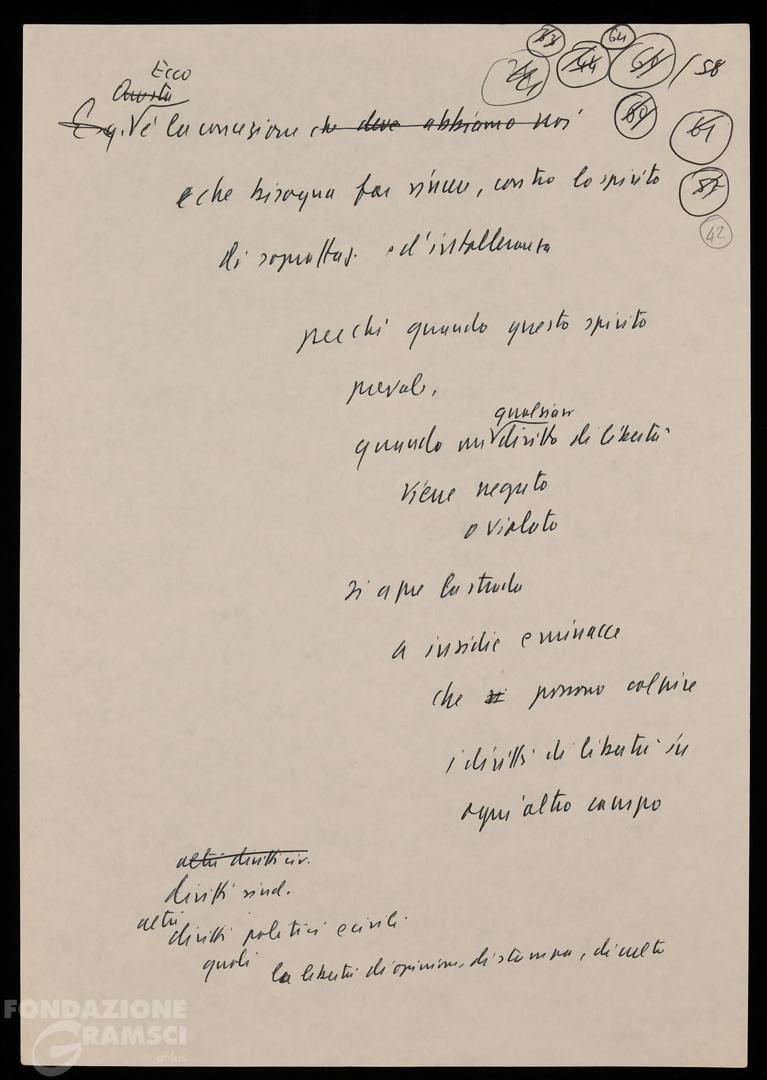 63 64
44 / 58
60
61
42
Ecco
Questa
E q. è la concezione che deve abbiamo noi
e che bisogna far vincere, contro lo spirito
di sopraffaz. e d'intolleranza
perché quando questo spirito
prevale,
qualsiasi
quando un diritto di libertà
viene negato
o violato
si apre la strada
a insidie e minacce
che si possono colpire
i diritti di libertà in
ogni altro campo
altri diritti civ.
diritti sind.
altri
diritti politici e civili
quali la libertà di opinione, di stampa, di culto
FONDAZIONE
GRAMSCI
onlus